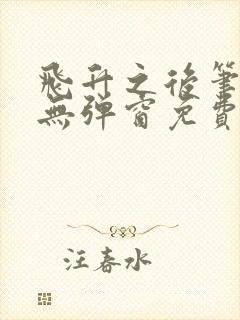 飛升之後筆
無彈窗免費
汪春水